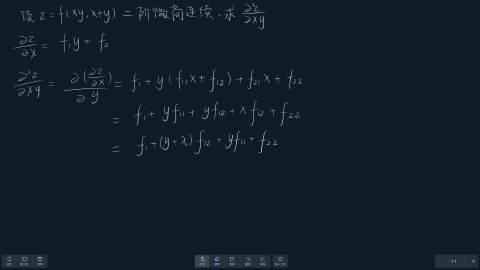 设 z = f(xy, x+y) 二阶微商连续. 求 ∂²z/∂xy
∂z/∂x = f₁y + f₂
∂²z/∂xy = ∂(∂z/∂x)/∂y = f₁ + y(f₁₁x + f₁₂) + f₂₁x + f₂₂
= f₁ + yf₁₁ + yf₁₂ + xf₁₂ + f₂₂
= f₁ + (y+x)f₁₂ + yf₁₁ + f₂₂